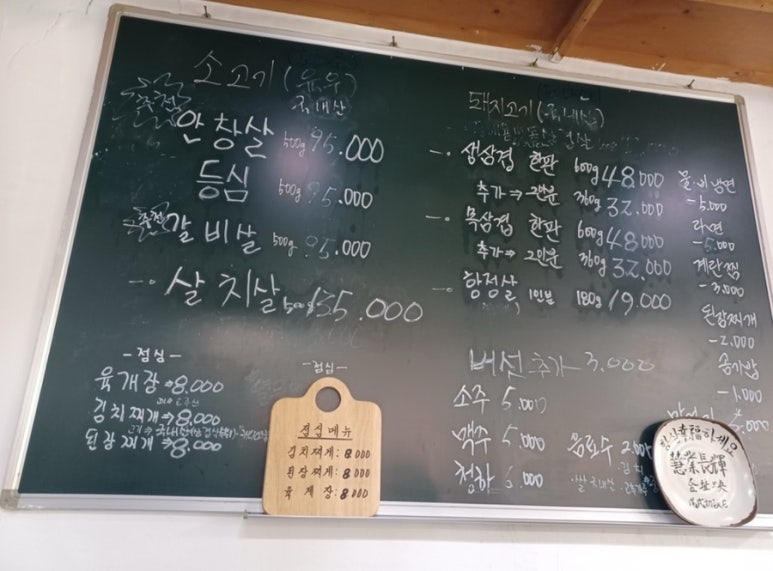 소고기(육우)
국내산
추천
안창살 500g 95.000
등심 500g 95.000
추천
갈비살 500g 95.000
살치살 500g 135.000
-점심-
육개장⇒8.000
김치찌개⇒8.000
된장찌개⇒8.000
-점심-
점심메뉴
김치찌개:8000
된장찌개:8000
육개장:8000
돼지고기(국내산)
생삼겹 한판 600g 48.000
추가⇒2인분 360g 32.000
목삼겹 한판 600g 48.000
추가⇒2인분 360g 32.000
항정살 1인분 180g 19.000
버섯추가 3.000
소주 5.000
맥주 5.000
음료수 2.000
청하 6.000
물.비냉면
-5.000
라면
-5.000
계란찜
-3.000
된장찌개
-2.000
공기밥
-1.000
5.000
幸福하세요
慧業長輝